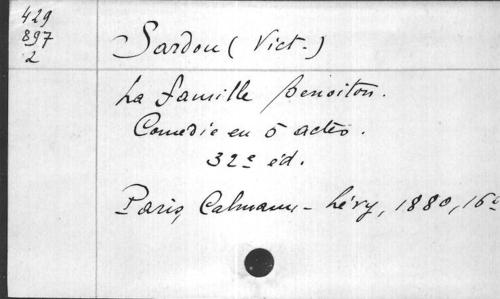 429
897
2
Sardou (Vict.)
La famille Benoiton.
Comedie en 5 actes.
32e éd.
Paris, Calmann-Lévy, 1880, 16º